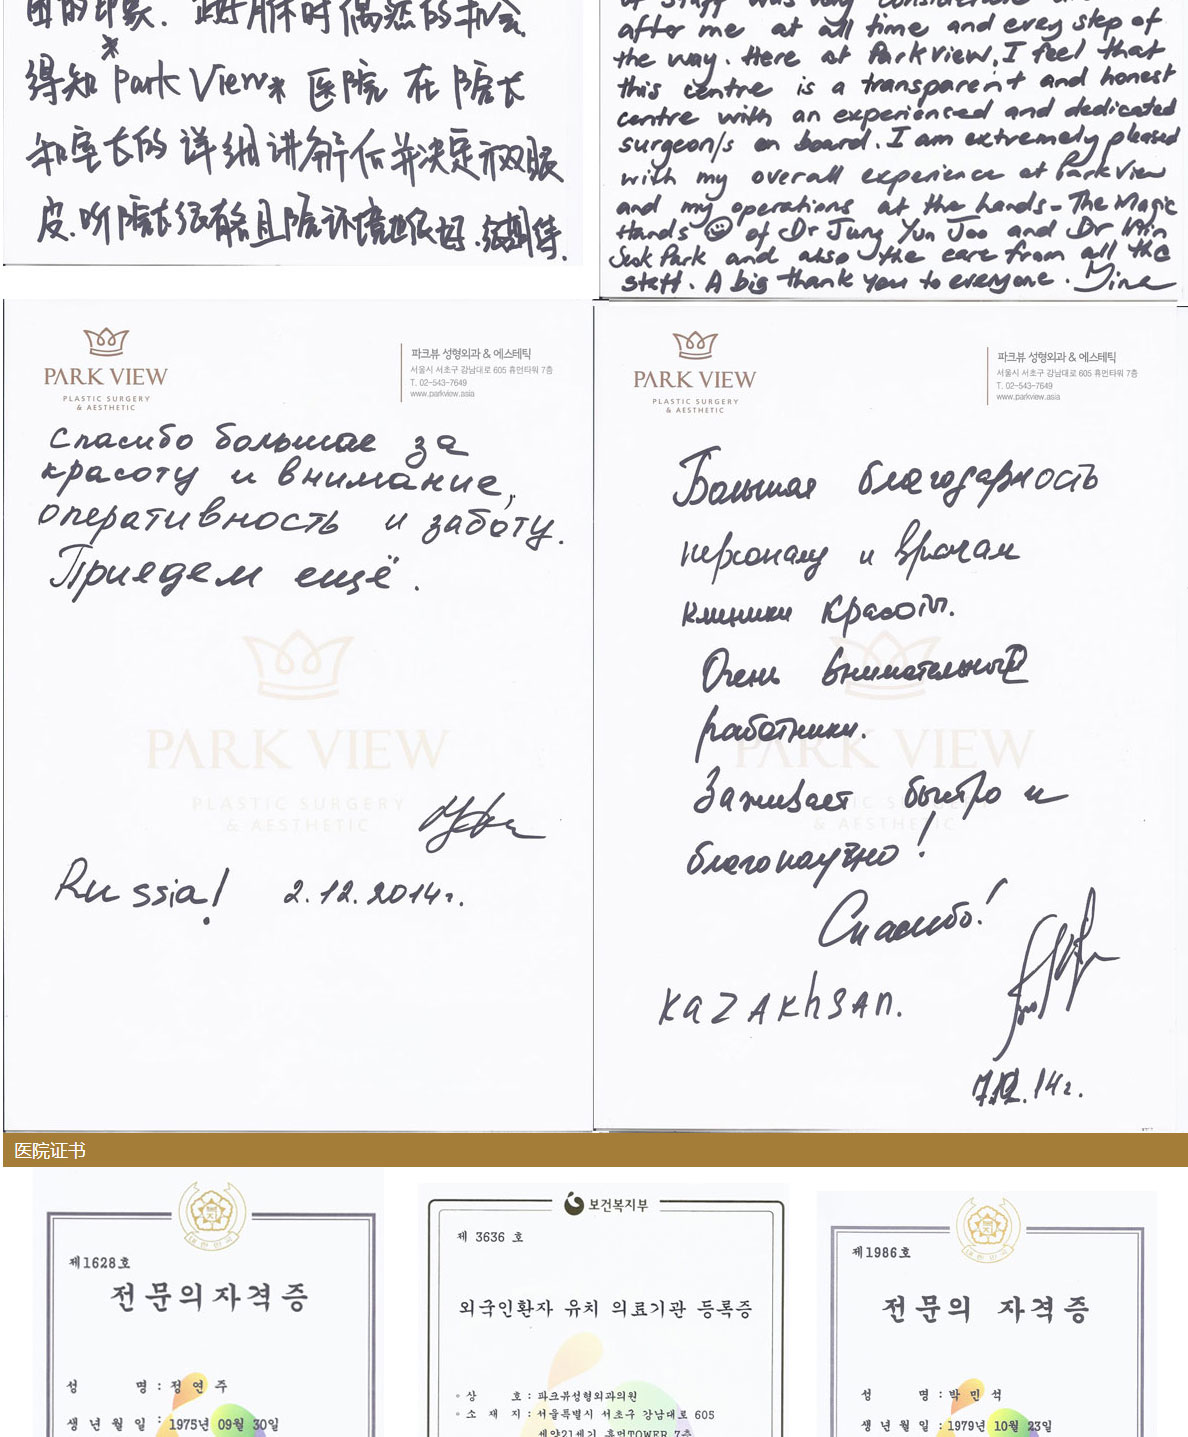 得知 *Park View* 医院 在 院长
和室长的 详细讲解后并决定双眼
皮.听院长很有名且院环境也很好.很期待.
after me at all time and evey step of
the way. Here at Parkview, I feel that
this centre is a transparent and honest
centre with an experienced and dedicated
surgeon/s on board. I am extremely pleased
with my overall experience at Parkview
and my operations at the hands - The Magic
Hands of Dr Jung Yun Joo and Dr Min
Seok Park and also the care from all the
staff. A big thank you to everyone.
PARK VIEW
PLASTIC SURGERY
& AESTHETIC
파크뷰 성형외과 & 에스테틱
서울시 서초구 강남대로 605 휴먼타워 7층
T. 02-543-7649
www.parkview.asia
Спасибо большое за
красоту и внимание,
оперативность и заботу.
Приедем ещё.
PARK VIEW
PLASTIC SURGERY
& AESTHETIC
Russia! 2.12.2014г.
PARK VIEW
PLASTIC SURGERY
& AESTHETIC
파크뷰 성형외과 & 에스테틱
서울시 서초구 강남대로 605 휴먼타워 7층
T. 02-543-7649
www.parkview.asia
Большая благодарность
персоналу и врачам
клиники красоты.
Очень внимательный
работники.
Заживает быстро и
благополучно!
Спасибо!
PARK VIEW
PLASTIC SURGERY
& AESTHETIC
KAZAKhSAN.
14г.
医院证书
제1628호
전문의자격증
성 명 : 정 연 주
생 년 월 일 : 1975년 09월 30일
보건복지부
제 3636 호
외국인환자 유치 의료기관 등록증
상 호 : 파크뷰성형외과의원
소 재 지 : 서울특별시 서초구 강남대로 605
제1986호
전문의 자격증
성 명 : 박 민 석
생 년 월 일 : 1979년 10월 23일